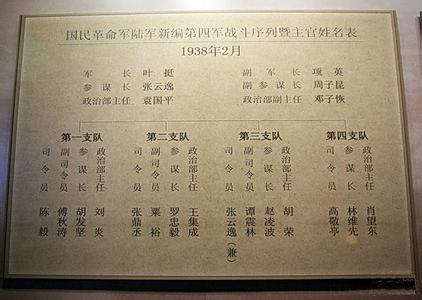 国民革命军陆军新编第四军战斗序列暨主官姓名表
1938年2月
军长 叶挺 副军长 项英
参谋长 张云逸 副参谋长 周子昆
政治部主任 袁国平 政治部副主任 邓子恢
第一支队
司令员 陈毅
副司令员 傅秋涛
参谋长 胡发坚
政治部主任 刘炎
第二支队
司令员 张鼎丞
副司令员 粟裕
参谋长 罗忠毅
政治部主任 王集成
第三支队
司令员 张云逸(兼)
副司令员 谭震林
参谋长 赵凌波
政治部主任 胡荣
第四支队
司令员 高敬亭
参谋长 林维先
政治部主任 肖望东